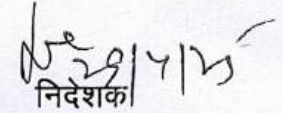 29/4/25
निदेशक